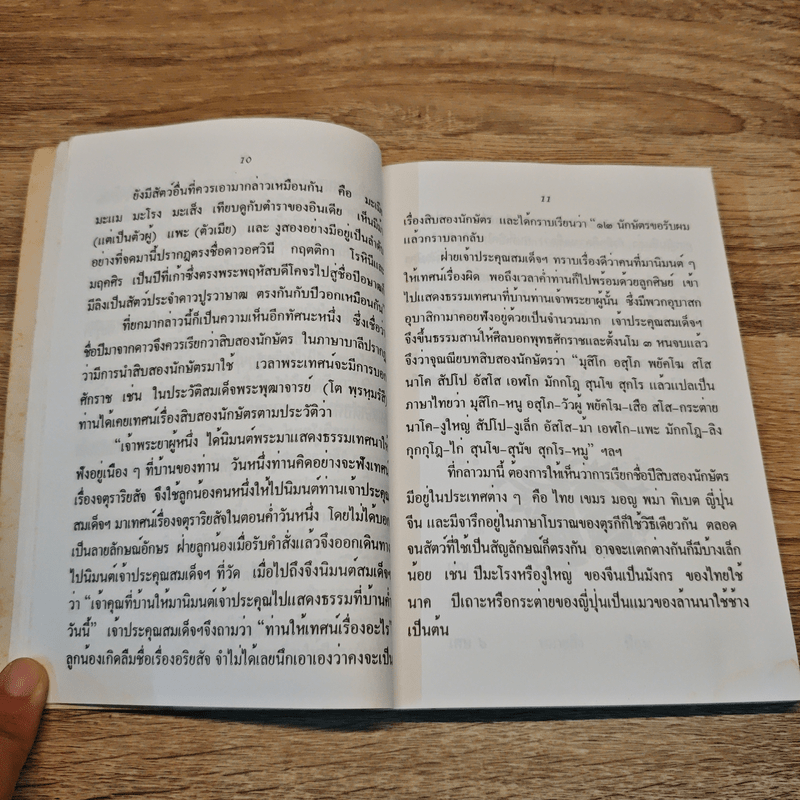 10
ยังมีสัตว์อื่นที่ควรเอามากล่าวเหมือนกัน คือ
มะแม มะโรง มะเส็ง เทียบดูกับตำราของอินเดีย เห็นมี
(แต่เป็นตัวผู้) แพะ (ตัวเมีย) และ งูสองอย่างมีอยู่เป็นลำดับ
อย่างที่จดมานี้ปรากฏตรงชื่อดาวอศวินี กฤตติกา โรหินี
มฤคศิร เป็นปีที่เก้าซึ่งตรงพระพฤหัสบดีโคจรไปสู่ชื่อปีอษาฒ
มีลิงเป็นสัตว์ประจำดาวปูรวาษาฒ ตรงกันกับปีวอกเหมือนกัน"
ที่ยกมากล่าวนี้ก็เป็นความเห็นอีกทัศนะหนึ่ง ซึ่งเชื่อว่า
ชื่อปีมาจากดาวจึงควรเรียกว่าสิบสองนักษัตร ในภาษาบาลีปรากฏ
ว่ามีการนำสิบสองนักษัตรมาใช้ เวลาพระเทศน์จะมีการบอก
ศักราช เช่น ในประวัติสมเด็จพระพุฒาจารย์ (โต พฺรหฺมรํสี)
ท่านได้เคยเทศน์เรื่องสิบสองนักษัตรตามประวัติว่า
"เจ้าพระยาผู้หนึ่ง ได้นิมนต์พระมาแสดงธรรมเทศนาให้
ฟังอยู่เนือง ๆ ที่บ้านของท่าน วันหนึ่งท่านคิดอย่างจะฟังเทศน์
เรื่องจตุราริยสัจ จึงใช้ลูกน้องคนหนึ่งให้ไปนิมนต์ท่านเจ้าประคุณ
สมเด็จฯ มาเทศน์เรื่องจตุราริยสัจในตอนค่ำวันหนึ่ง โดยไม่ได้บอก
เป็นลายลักษณ์อักษร ฝ่ายลูกน้องเมื่อรับคำสั่งแล้วจึงออกเดินทาง
ไปนิมนต์เจ้าประคุณสมเด็จฯ ที่วัด เมื่อไปถึงจึงนิมนต์สมเด็จฯ
ว่า "เจ้าคุณที่บ้านให้มานิมนต์เจ้าประคุณไปแสดงธรรมที่บ้านค่ำ
วันนี้" เจ้าประคุณสมเด็จฯจึงถามว่า "ท่านให้เทศน์เรื่องอะไร"
ลูกน้องเกิดลืมชื่อเรื่องอริยสัจ จำไม่ได้เลยนึกเอาเองว่าคงจะเป็น
11
เรื่องสิบสองนักษัตร และได้กราบเรียนว่า "๑๒ นักษัตรขอรับผม
แล้วกราบลากลับ
ฝ่ายเจ้าประคุณสมเด็จฯ ทราบเรื่องดีว่าคนที่มานิมนต์ ๆ
ให้เทศน์เรื่องผิด พอถึงเวลาค่ำท่านก็ไปพร้อมด้วยลูกศิษย์ เข้า
ไปแสดงธรรมเทศนาที่บ้านท่านเจ้าพระยาผู้นั้น ซึ่งมีพวกอุบาสก
อุบาสิกามาคอยฟังอยู่ด้วยเป็นจำนวนมาก เจ้าประคุณสมเด็จฯ
จึงขึ้นธรรมาสน์ให้ศีลบอกพุทธศักราชและตั้งนโม ๓ หนจบแล้ว
จึงว่าจุณณียบทสิบสองนักษัตรว่า "มุสิโก อสุโภ พยัคโฆ สโส
นาโค สัปโป อัสโส เอฬโก มักกโฏ สุนโข สุกโร แล้วแปลเป็น
ภาษาไทยว่า มุสิโก-หนู อสุโภ-วัวผู้ พยัคโฆ-เสือ สโส-กระต่าย
นาโค-งูใหญ่ สัปโป-งูเล็ก อัสโส-ม้า เอฬโก-แพะ มักกโฏ-ลิง
กุกกุโฏ-ไก่ สุนโข-สุนัข สุกโร-หมู" ฯลฯ
ที่กล่าวมานี้ ต้องการให้เห็นว่าการเรียกชื่อปีสิบสองนักษัตร
มีอยู่ในประเทศต่าง ๆ คือ ไทย เขมร มอญ พม่า ทิเบต ญี่ปุ่น
จีน และมีจารึกอยู่ในภาษาโบราณของตุรกีก็ใช้วิธีเดียวกัน ตลอด
จนสัตว์ที่ใช้เป็นสัญลักษณ์ก็ตรงกัน อาจจะแตกต่างกันก็มีบ้างเล็ก
น้อย เช่น ปีมะโรงหรืองูใหญ่ ของจีนเป็นมังกร ของไทยใช้
นาค ปีเถาะหรือกระต่ายของญี่ปุ่นเป็นแมวของล้านนาใช้ช้าง
เป็นต้น